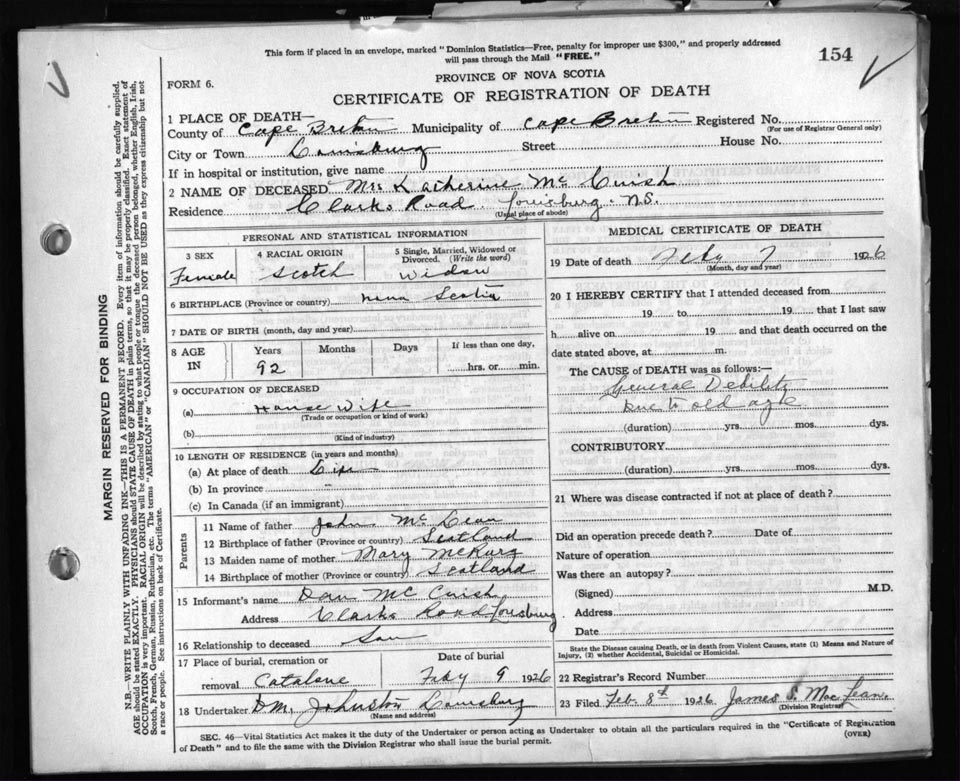 This form if placed in an envelope, marked "Dominion Statistics—Free, penalty for improper use $300," and properly addressed
will pass through the Mail "FREE."
154
FORM 6.
PROVINCE OF NOVA SCOTIA
CERTIFICATE OF REGISTRATION OF DEATH
1 PLACE OF DEATH—
County of Cape Breton Municipality of Cape Breton Registered No.
(For use of Registrar General only)
City or Town Louisburg Street House No.
If in hospital or institution, give name
2 NAME OF DECEASED Mrs Katherine Mc Cuish
Residence Clarks Road Louisburg N.S.
(Usual place of abode)
PERSONAL AND STATISTICAL INFORMATION
3 SEX
Female
4 RACIAL ORIGIN
Scotch
5 Single, Married, Widowed or
Divorced. (Write the word)
Widow
6 BIRTHPLACE (Province or country) Nova Scotia
7 DATE OF BIRTH (month, day and year)
8 AGE
IN
Years
92
Months
Days
If less than one day,
hrs. or min.
9 OCCUPATION OF DECEASED
(a) House Wife
(Trade or occupation or kind of work)
(b)
(Kind of industry)
10 LENGTH OF RESIDENCE (in years and months)
(a) At place of death Life
(b) In province
(c) In Canada (if an immigrant)
Parents
11 Name of father John McLean
12 Birthplace of father (Province or country) Scotland
13 Maiden name of mother Mary
14 Birthplace of mother (Province or country) Scotland
15 Informant's name Dan McCuish
Address Clarks Road Louisburg
16 Relationship to deceased Son
17 Place of burial, cremation or
removal Catalone
Date of burial
Feby 9 1926
18 Undertaker D.M. Johnston Louisburg
(Name and address)
MEDICAL CERTIFICATE OF DEATH
19 Date of death Feby 7 1926
(Month, day and year)
20 I HEREBY CERTIFY that I attended deceased from
19 to 19 that I last saw
h alive on 19 and that death occurred on the
date stated above, at m.
The CAUSE of DEATH was as follows:—
General Debility
Due to old age
(duration) yrs. mos. dys.
CONTRIBUTORY
(duration) yrs. mos. dys.
21 Where was disease contracted if not at place of death?
Did an operation precede death? Date of
Nature of operation
Was there an autopsy?
(Signed) M.D.
Address
Date
State the Disease causing Death, or in death from Violent Causes, state (1) Means and Nature of
Injury, (2) whether Accidental, Suicidal or Homicidal.
22 Registrar's Record Number
23 Filed Feb. 8th 1926 James S. MacLean
(Division Registrar)
SEC. 46—Vital Statistics Act makes it the duty of the Undertaker or person acting as Undertaker to obtain all the particulars required in the "Certificate of Registration
of Death" and to file the same with the Division Registrar who shall issue the burial permit.
(OVER)
MARGIN RESERVED FOR BINDING
N.B.—WRITE PLAINLY WITH UNFADING INK—THIS IS A PERMANENT RECORD. Every item of information should be carefully supplied.
AGE should be stated EXACTLY. PHYSICIANS should STATE CAUSE OF DEATH in plain terms, so that it may be properly classified. Exact statement of
OCCUPATION is very important. RACIAL ORIGIN will be described by stating to what people or tongue the deceased person belonged, whether English, Irish,
Scotch, French, German, Russian, Ruthenian, etc. The terms "AMERICAN" or "CANADIAN" SHOULD NOT BE USED as they express citizenship but not
a race or people. See instructions on back of Certificate.